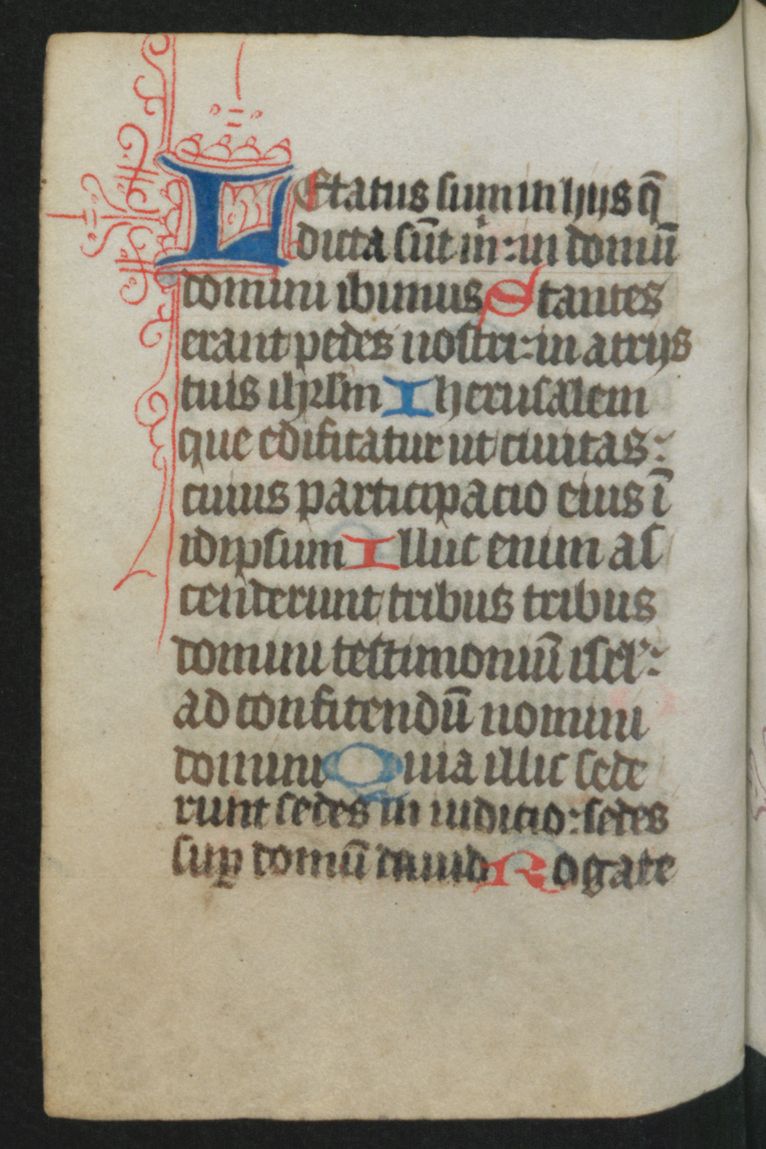 LEtatus sum in hijs q̄
dicta sūt m̄ : in domū
domini ibimus Stantes
erant pedes nostri : in atrijs
tuis ihrlm Iherusalem
que edificatur ut ciuitas :
cuius participacio eius ī
idipsum Illuc enim as
cenderunt tribus tribus
domini testimoniū isrl' :
ad confitendū nomini
domini Quia illic sede
runt sedes in iudicio : sedes
suꝑ domū dauid Rogate